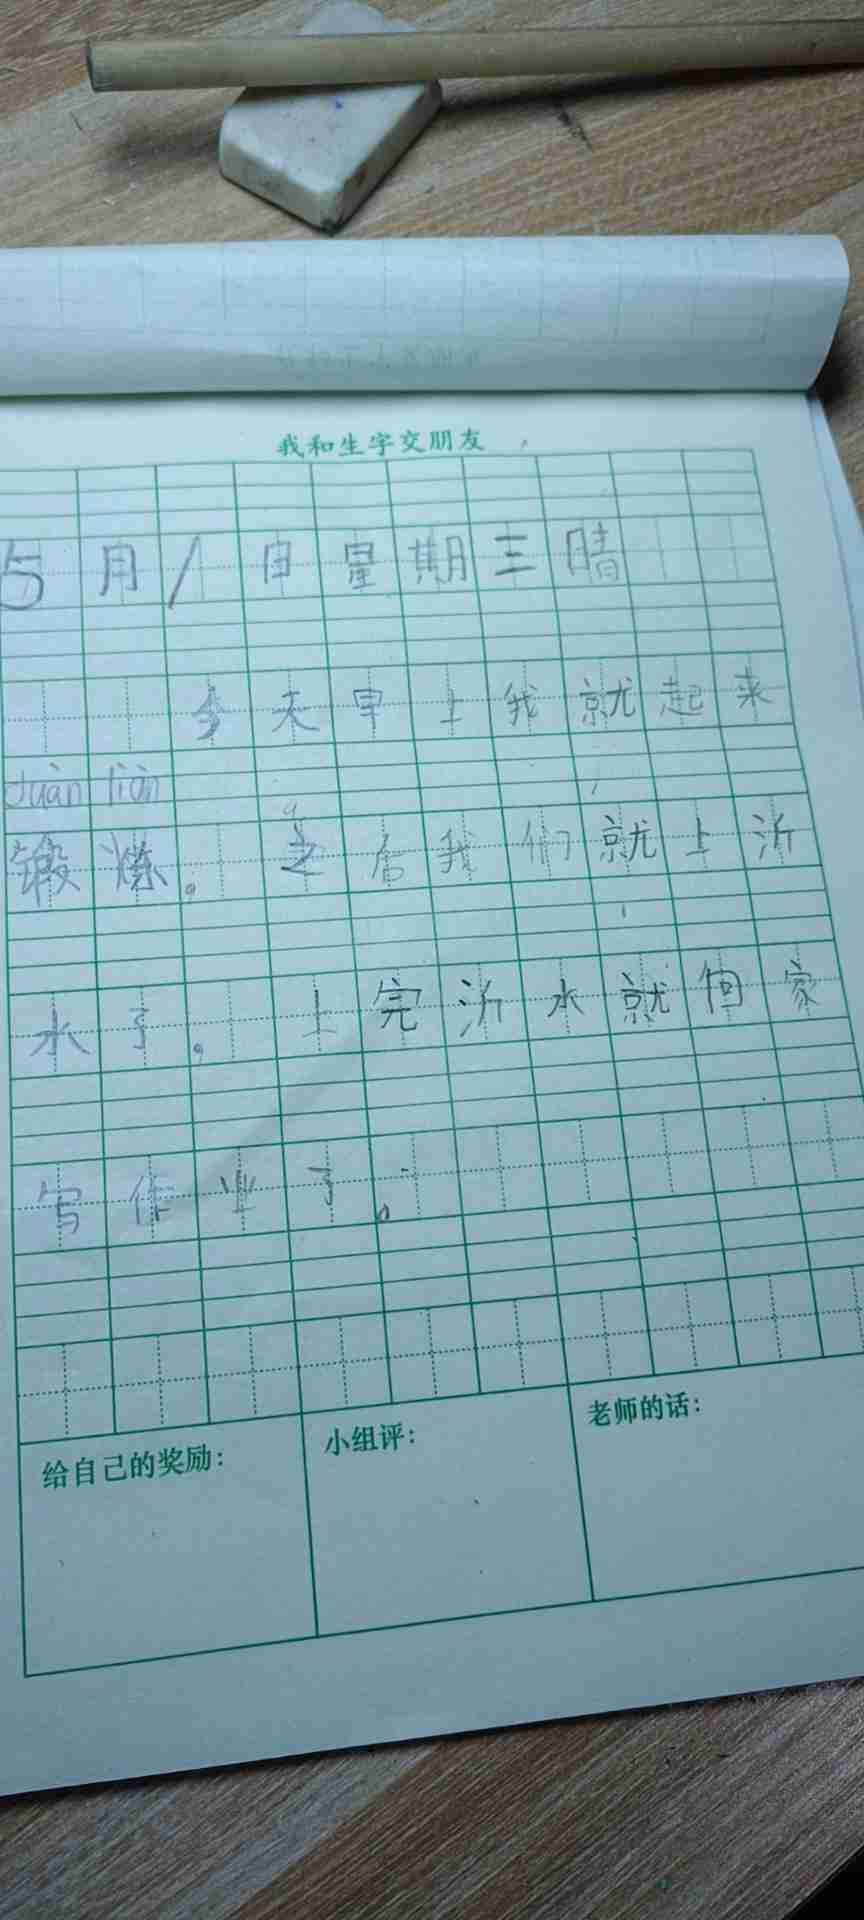 我和生字交朋友
5月1日星期三晴
今天早上我就起来
duàn liàn
锻炼。之后我们就上沂
水了。上完沂水就回家
写作业了。
给自己的奖励：
小组评：
老师的话：